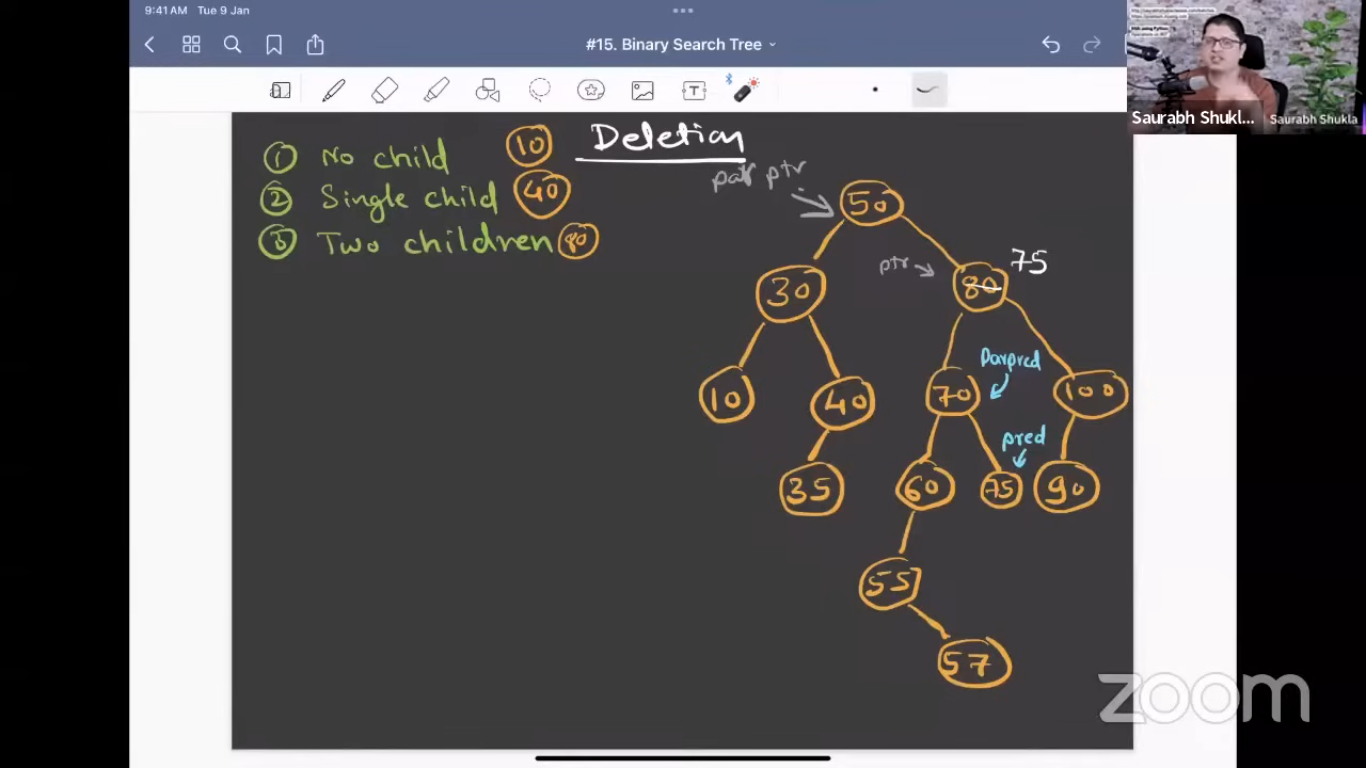 9:41 AM Tue 9 Jan
#15. Binary Search Tree
T
Saurabh Shukl...
Saurabh Shukla
Deletion
① No child 10
② Single child 40
③ Two children 80
par ptr
50
ptr
80 75
30
Parpred
10
40
70
100
pred
35
60
75
90
55
57
zoom